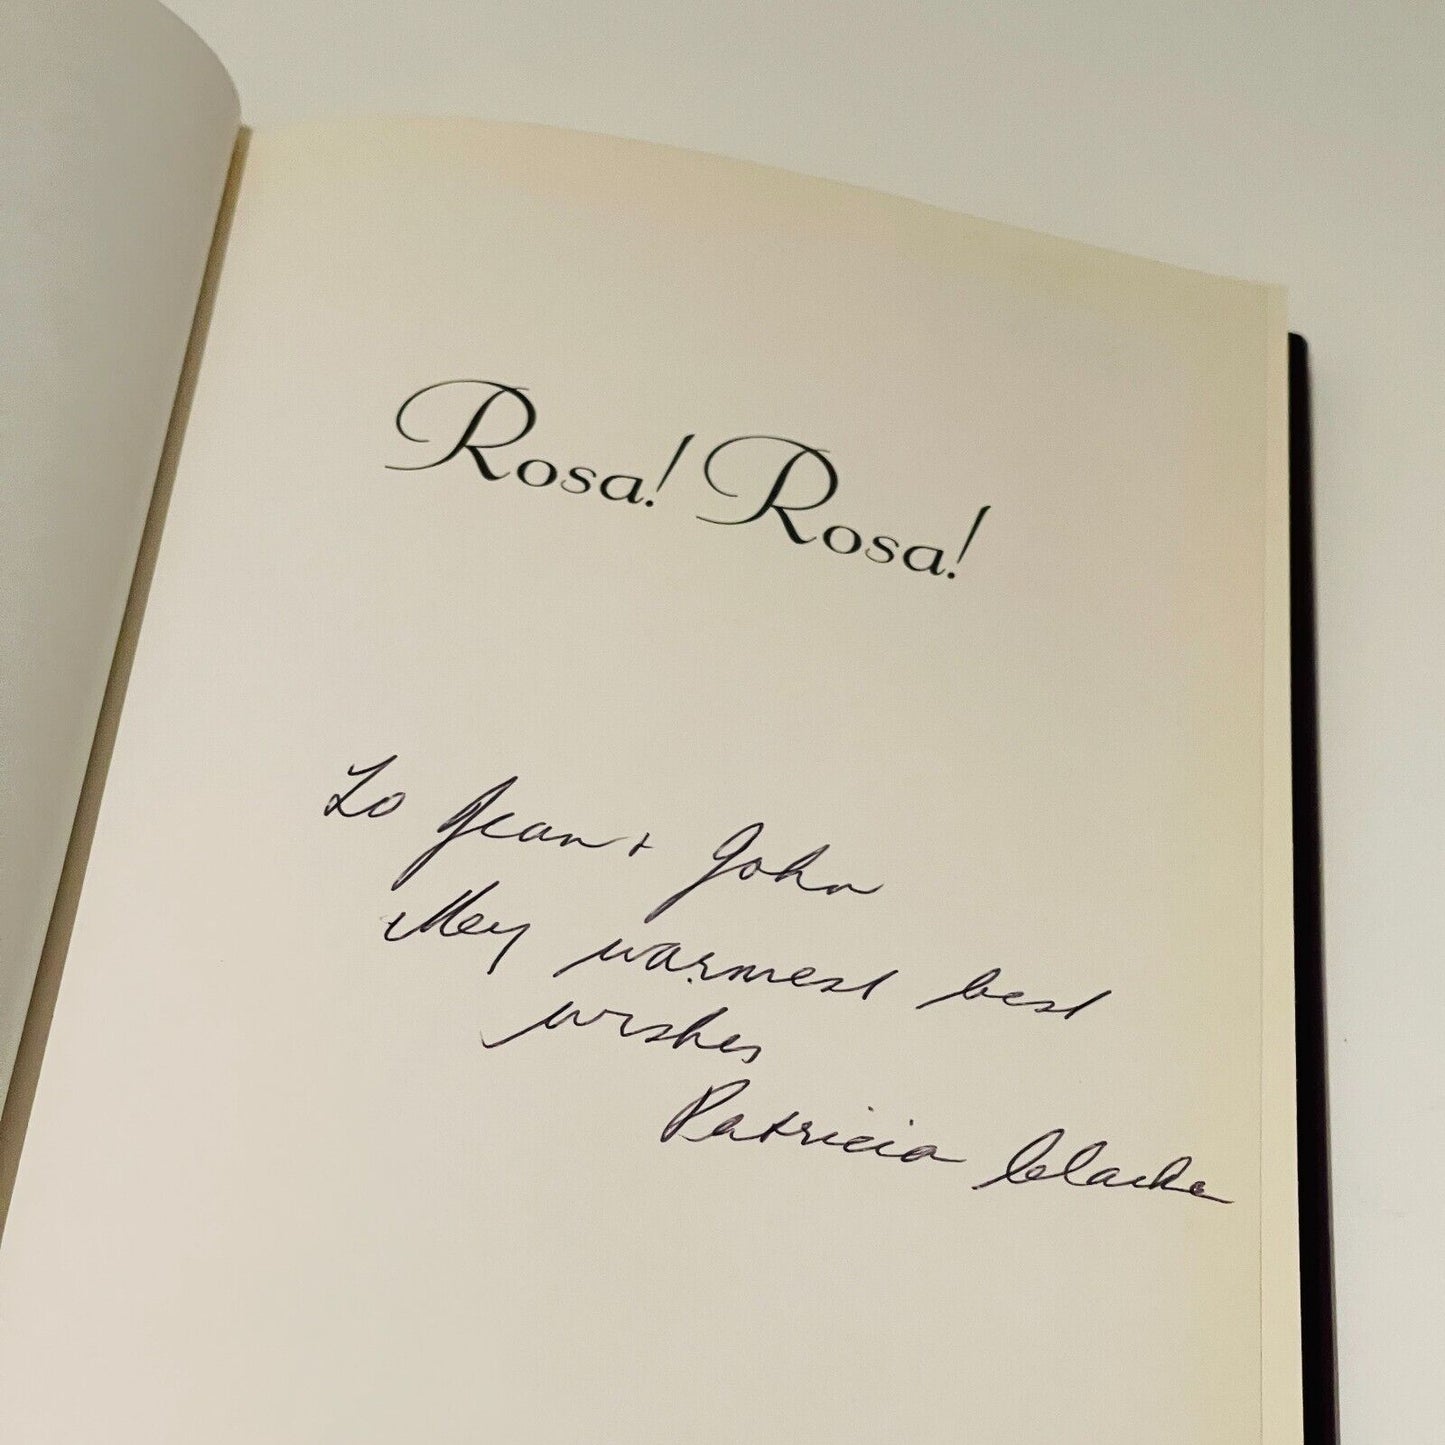 Rosa! Rosa!
To Jean + John
My warmest best
wishes
Patricia Clarke